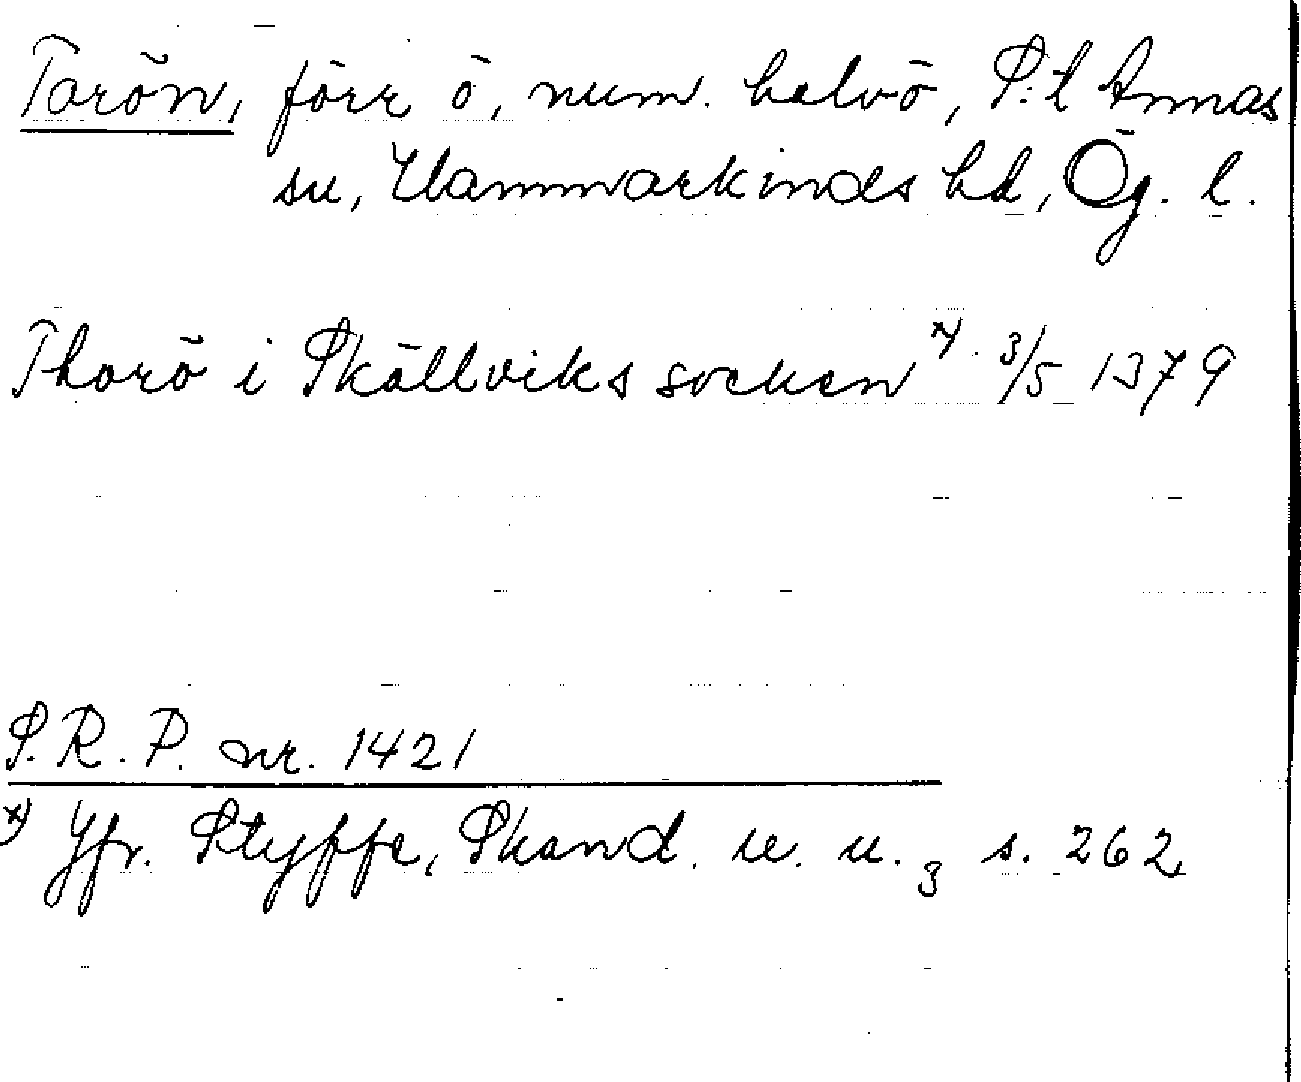 Torön, förr ö, num. halvö, S:t Annas
sn, Hammarkinds hd, Ög. l.
Thorö i Skällviks socken x) 3/5 1379
S.R.P. nr. 1421
x) Jfr. Styffe, Skand. u. u. 3 s. 262